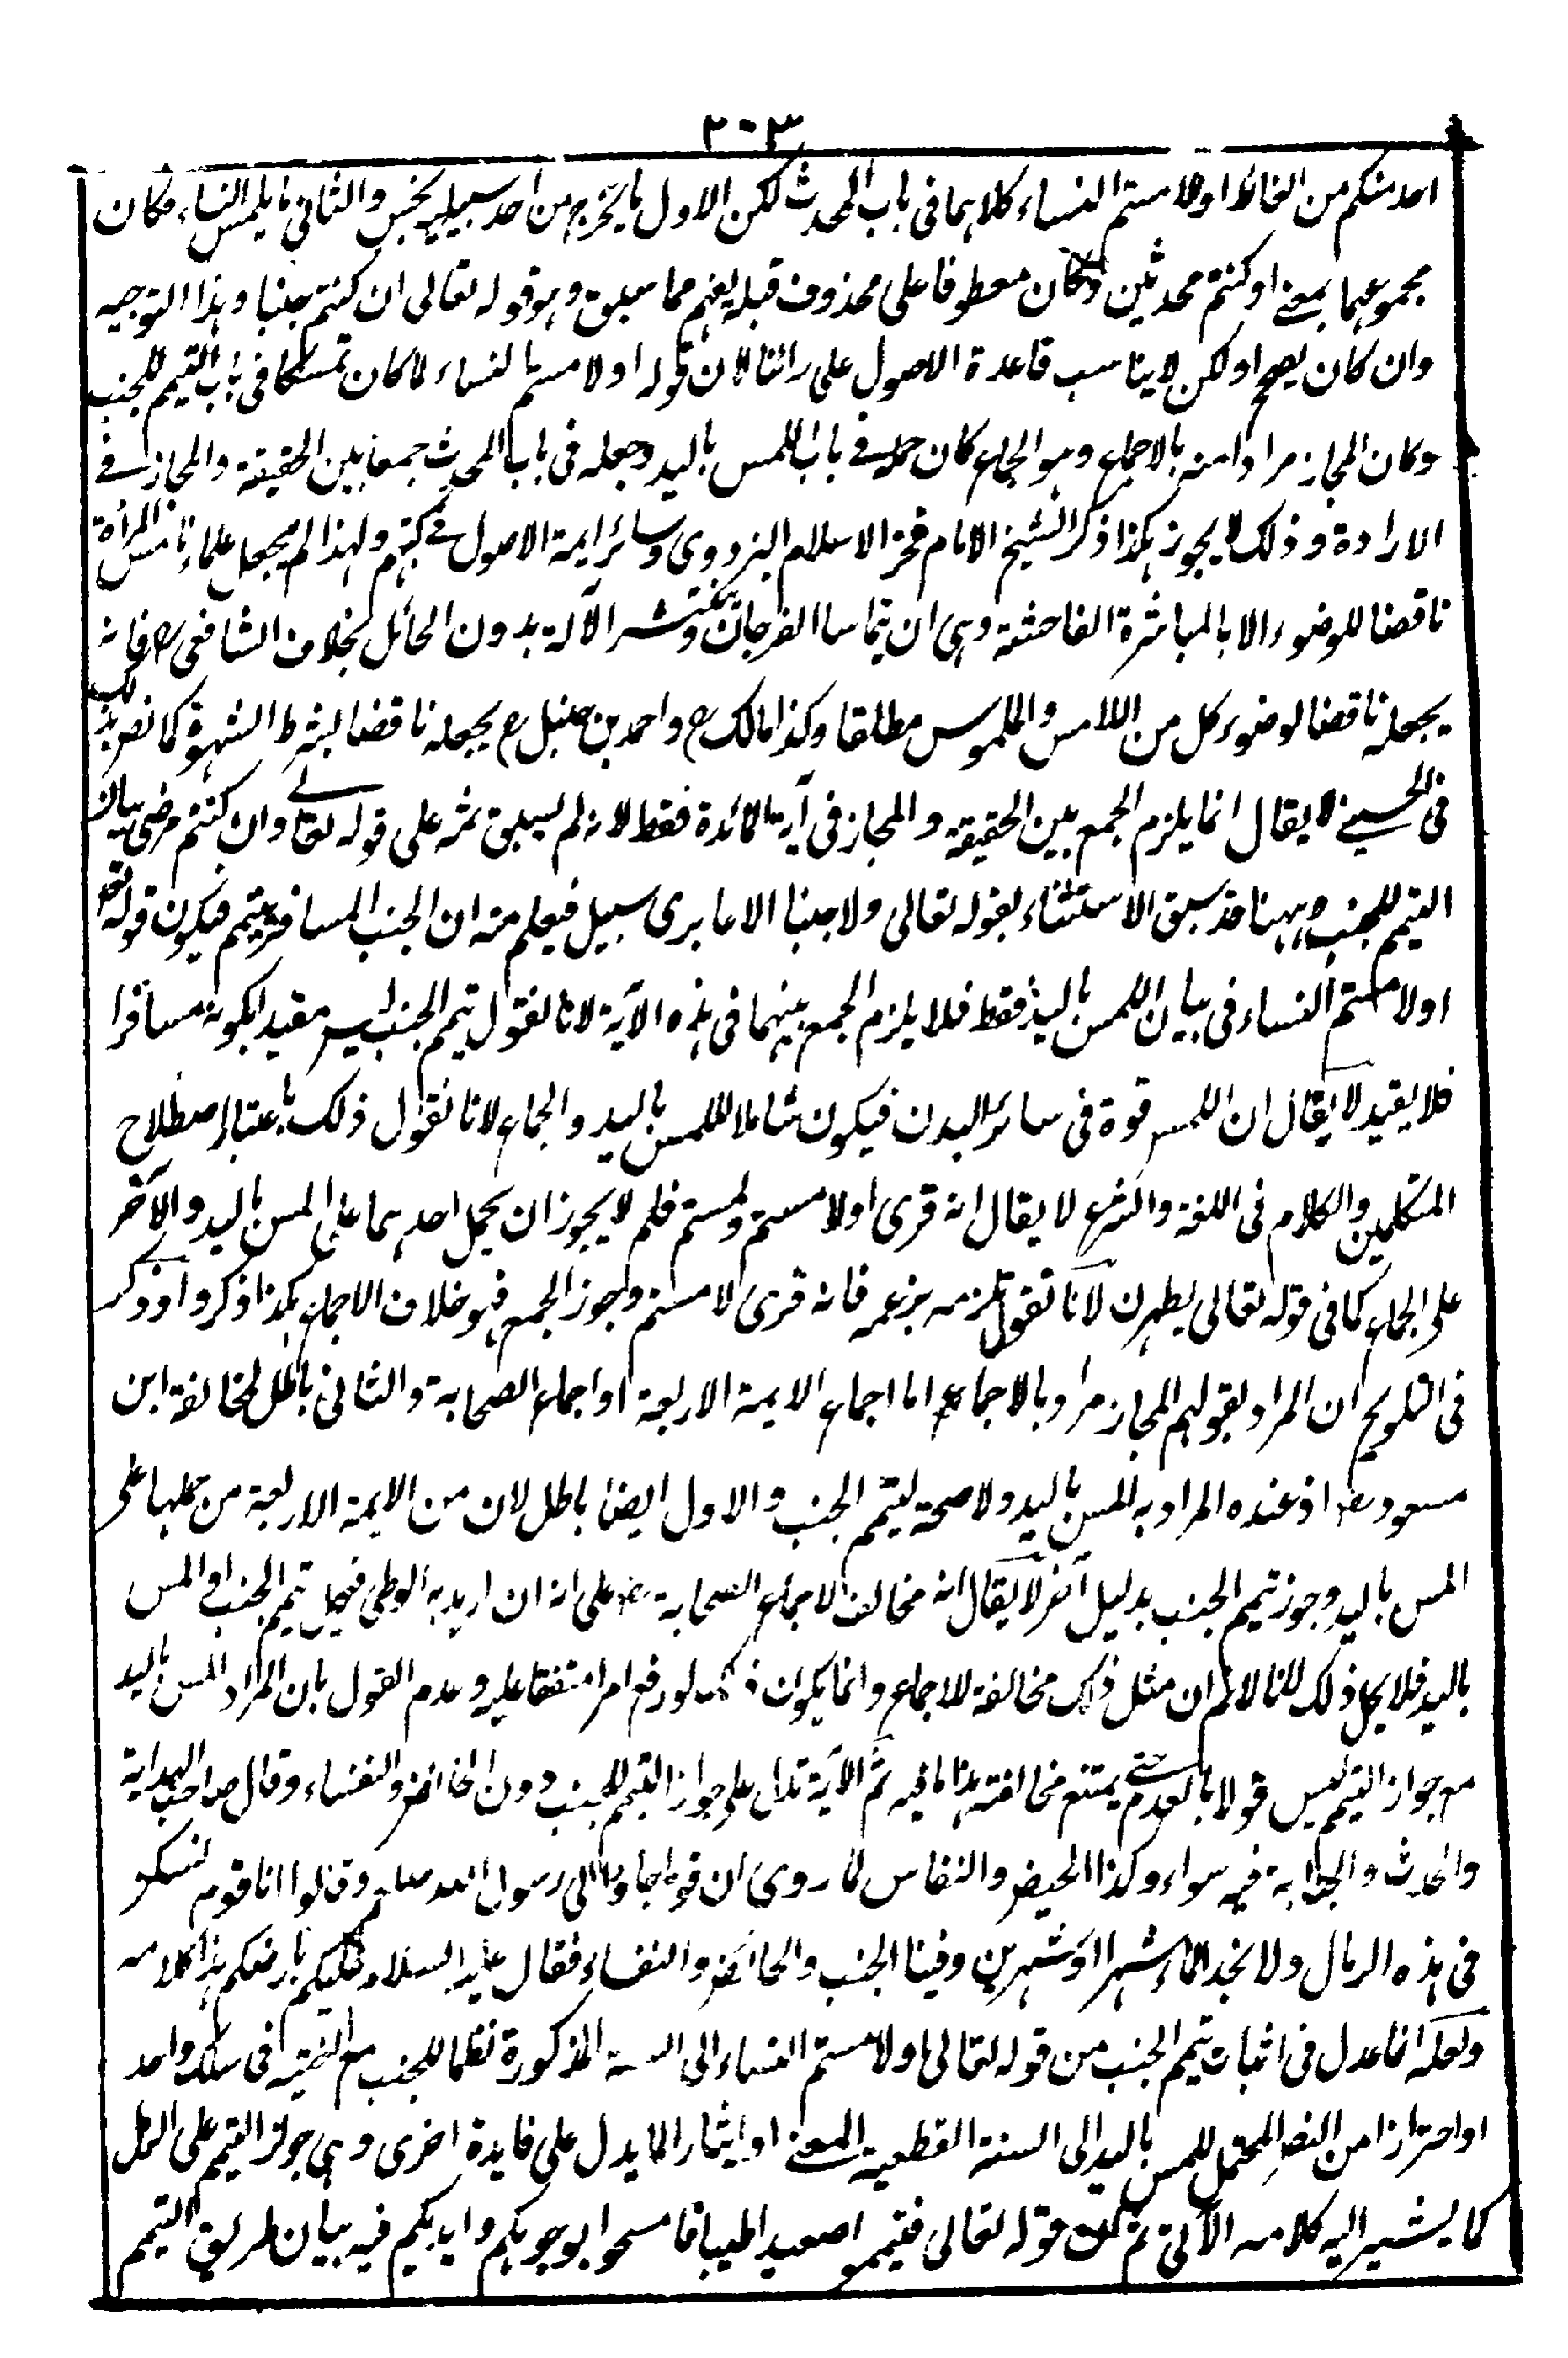 ٢٠٣
احد منكم من الغائط او لامستم النساء كلاهما فى باب المحدث لكن الاول ما يخرج من احد سبيليه نجس والثانى ما يلمس النساء فكان
مجموعهما بمعنى او كنتم محدثين وكان معطوفا على محذوف قبله يفهم مما سبق وهو قوله تعالى ان كنتم جنبا وهذا التوجيه
وان كان يصح اولكن لا يناسب قاعدة الاصول على رائنا لان قوله او لامستم النساء لما كان تمسكا فى باب التيمم للجنب
وكان المجاز مرادا منه بالاجماع وهو الجماع كان حمله فى باب اللمس باليد وجعله فى باب المحدث جمعا بين الحقيقة والمجاز فى
الارادة وذلك لا يجوز هكذا ذكر الشيخ الامام فخر الاسلام البزدوى وسائر ايمة الاصول فى كتبهم ولهذا لم يجعل علماءنا مس المرأة
ناقضا للوضوء الا بالمباشرة الفاحشة وهى ان يتماسا الفرجان وتنتشر الآلة بدون الحائل بخلاف الشافعى رح فانه
يجعله ناقضا لوضوء كل من اللامس والملموس مطلقا وكذا مالك رح واحمد بن حنبل رح يجعله ناقضا بشرط الشهوة كما نص بذلك
فى الحسينى لا يقال انما يلزم الجمع بين الحقيقة والمجاز فى آية المائدة فقط لانه لم يسبق ثمه على قوله تعالى وان كنتم مرضى بيان
التيمم للجنب وههنا قد سبق الاستثناء بقوله تعالى ولا جنبا الا عابرى سبيل فيعلم منه ان الجنب المسافر يتيمم فيكون قوله تعالى
او لامستم النساء فى بيان اللمس باليد فقط فلا يلزم الجمع بينهما فى هذه الآية لانا نقول تيمم الجنب ليس مقيدا بكونه مسافرا
فلا يقيد لا يقال ان اللمس قوة فى سائر البدن فيكون شاملا لللمس باليد والجماع لانا نقول ذلك باعتبار اصطلاح
المتكلمين والكلام فى اللغة والشرع لا يقال انه قرى او لامستم ولمستم فلم لا يجوز ان يحمل احدهما على المس باليد والآخر
على الجماع كما فى قوله تعالى يطهرن لانا نقول تلزمه بزعمه فانه قرى لامستم وجوز الجمع فهو خلاف الاجماع هكذا ذكروا وذكر
فى التلويح ان المراد بقولهم المجاز مراد بالاجماع اما اجماع الايمة الاربعة او اجماع الصحابة والثانى باطل لمخالفة ابن
مسعود رض اذ عنده المراد به المس باليد ولا صحة لتيمم الجنب والاول ايضا باطل لان من الايمة الاربعة من حملها على
المس باليد وجوز تيمم الجنب بدليل آخر لا يقال انه مخالف لاجماع الصحابة رض على انه ان اريد به الوطى فيحل تيمم الجنب او المس
باليد فلا يحل ذلك لانا لا نم ان مثل ذلك مخالفة للاجماع وانما يكون ذلك لو رفع امرا متفقا عليه وعدم القول بان المراد المس باليد
مع جواز التيمم ليس قولا بالعدم حتى يمتنع مخالفته هذا ما فيه ثم الآية تدل على جواز التيمم للجنب دون الحائض والنفساء وقال صاحب الهداية
والحدث والجنابة فيه سواء وكذا الحيض والنفاس لما روى ان قوما جاوا الى رسول الله صلعم وقالوا انا قوم نسكن
فى هذه الرمال ولا نجد الماء شهرا او شهرين وفينا الجنب والحائض والنفساء فقال عليه السلام عليكم بارضكم هذا كلامه
ولعله انما عدل فى اثبات تيمم الجنب من قوله تعالى او لامستم النساء الى السنة المذكورة نظما للجنب مع البقية فى سلك واحد
او احترازا من النص المحتمل للمس باليد الى السنة القطعية المعنى او ايثارا لما يدل على فايدة اخرى وهى جواز التيمم على الرمل
كما يشير اليه كلامه الآتى ثم قوله تعالى فتيمموا صعيدا طيبا فامسحوا بوجوهكم وايديكم فيه بيان طريق التيمم